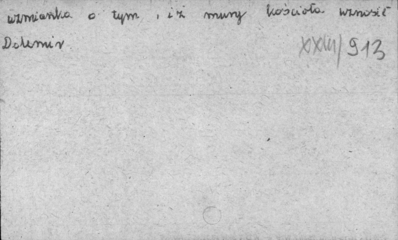 wzmianka o tym, iż mury kościoła wznosił
Dalemir
XXIII/913